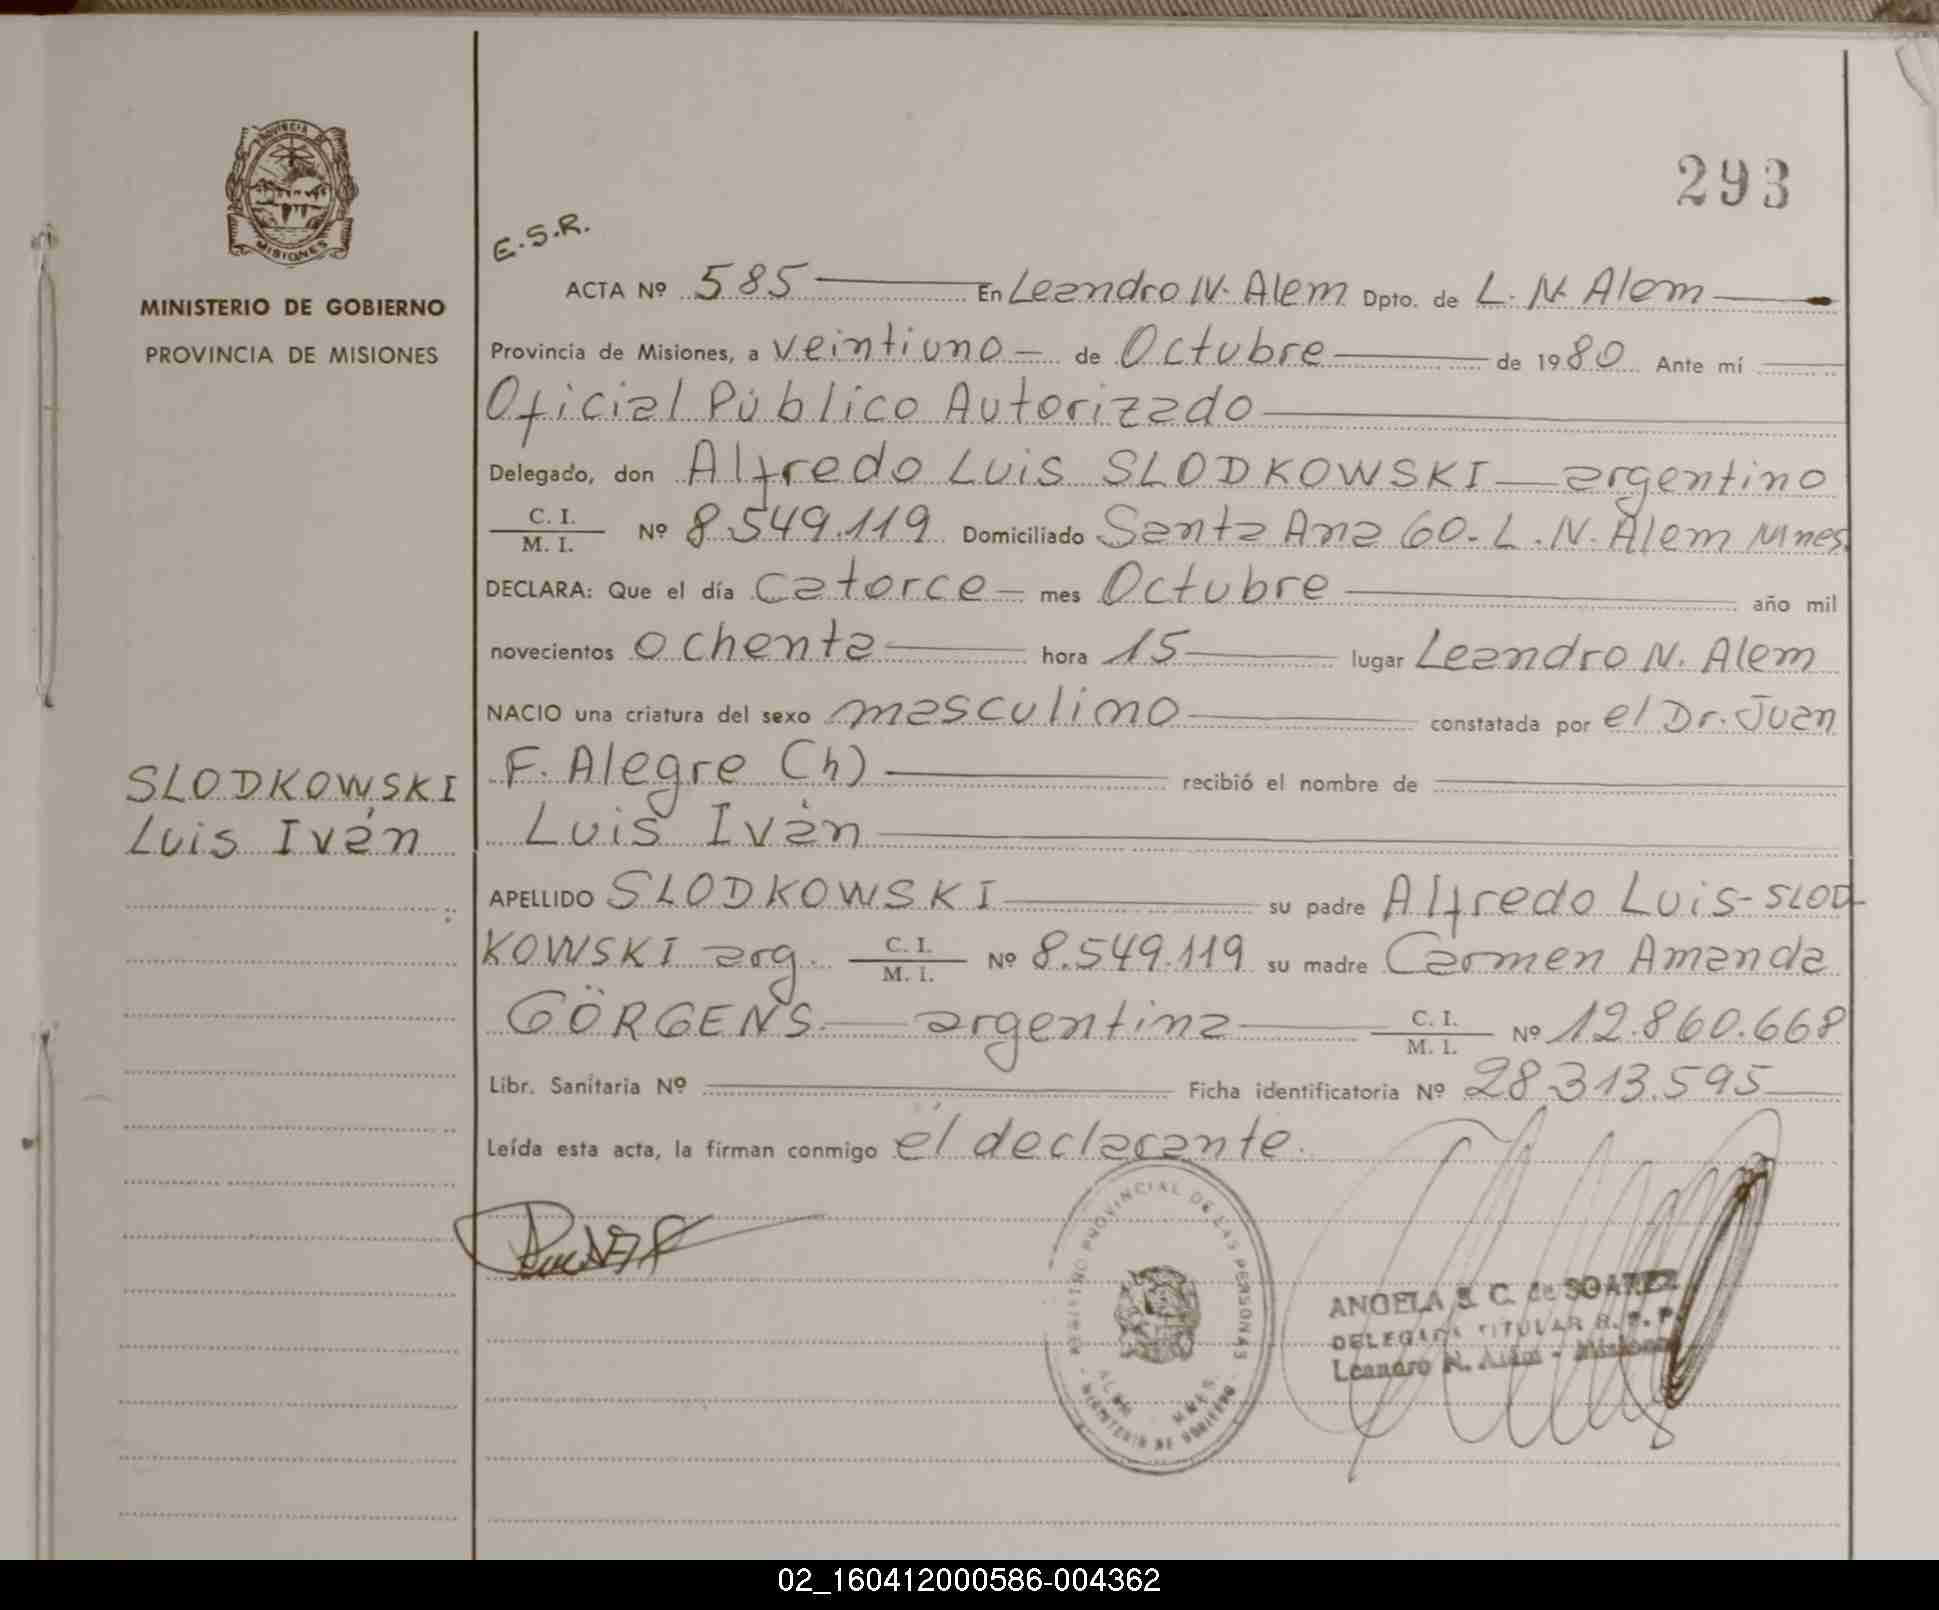 PROVINCIA DE
MISIONES
MINISTERIO DE GOBIERNO
PROVINCIA DE MISIONES
SLODKOWSKI
Luis Iván
293
E.S.R.
ACTA Nº 585 En Leandro N. Alem Dpto. de L. N. Alem
Provincia de Misiones, a veintiuno de Octubre de 1980 Ante mí
Oficial Público Autorizado
Delegado, don Alfredo Luis SLODKOWSKI argentino
C. I. / M. I. Nº 8.549.119 Domiciliado Santa Ana 60-L.N. Alem Mnes.
DECLARA: Que el día catorce mes Octubre año mil
novecientos ochenta hora 15 lugar Leandro N. Alem
NACIO una criatura del sexo masculino constatada por el Dr. Juan
F. Alegre (h) recibió el nombre de
Luis Iván
APELLIDO SLODKOWSKI su padre Alfredo Luis-SLOD-
KOWSKI arg. C. I. / M. I. Nº 8.549.119 su madre Carmen Amanda
GÖRGENS argentina C. I. / M. I. Nº 12.860.668
Libr. Sanitaria Nº Ficha identificatoria Nº 28.313.595
Leída esta acta, la firman conmigo el declarante.
PROVINCIAL DE LAS PERSONAS
ALEM - MNES.
MINISTERIO DE GOBIERNO
ANGELA S. C. de SOAREZ
DELEGADA TITULAR R. P. P.
Leandro N. Alem - Misiones
02_160412000586-004362